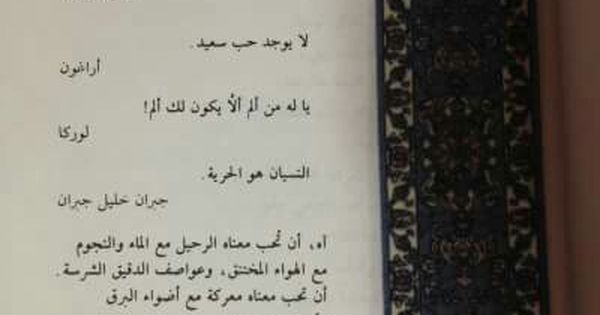 لا يوجد حب سعيد.
أراغون
يا له من ألم ألّا يكون لك ألم!
لوركا
النسيان هو الحرية.
جبران خليل جبران
آه، أن تُحب معناه الرحيل مع الماء والنجوم
مع الهواء المختنق، وعواصف الدقيق الشرسة.
أن تحب معناه معركة مع أضواء البرق